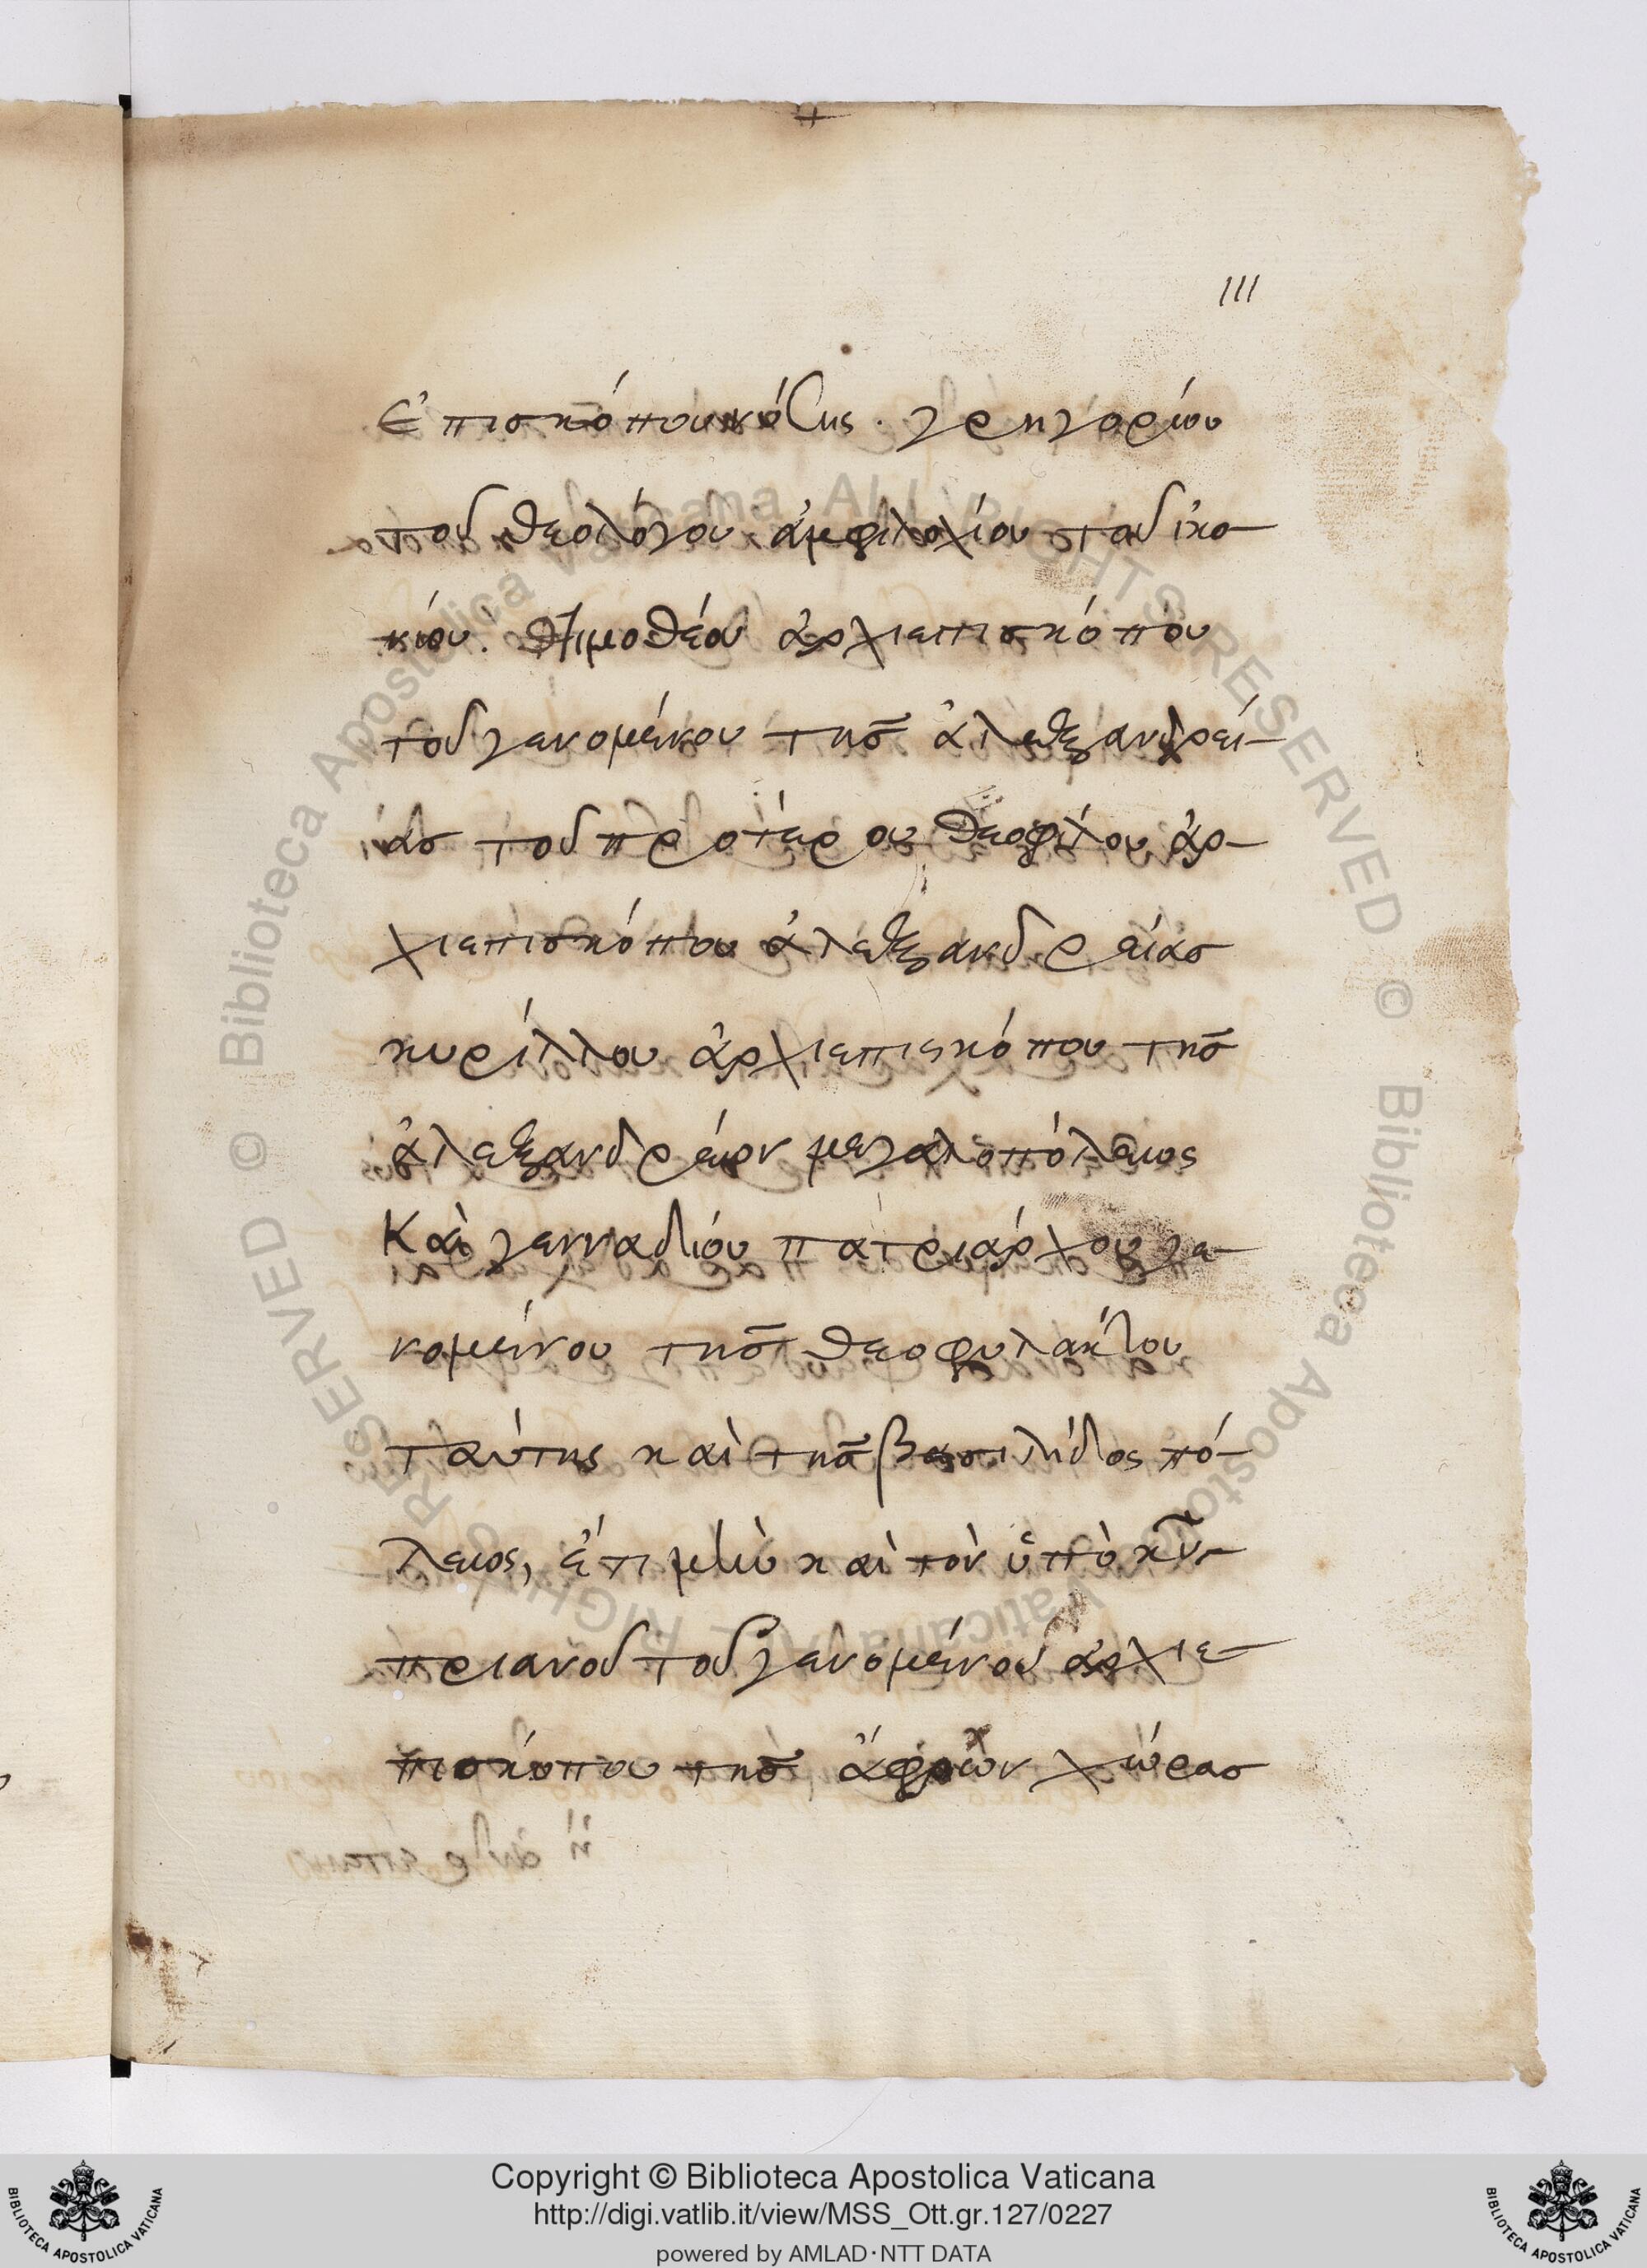 111
ἐπισκόπου νύσης. γρηγορίου
τοῦ θεολόγου ἀμφιλοχίου τοῦ ἰκο-
νίου. τιμοθέου ἀρχιεπισκόπου
τοῦ γενομένου τῆς ἀλεξανδρεί-
ας τοῦ προτέρου θεοφίλου ἀρ-
χιεπισκόπου ἀλεξανδρείας
κυρίλλου ἀρχιεπισκόπου τῆς
ἀλεξανδρέων μεγαλοπόλεως
Καὶ γενναδίου πατριάρχου γε-
νομένου τῆς θεοφυλάκτου
ταύτης καὶ τῆς βασιλίδος πό-
λεως, ἔτι μὴν καὶ τὸν ὑπὸ κυ-
πριανοῦ τοῦ γενομένου ἀρχιε-
πισκόπου τῆς ἄφρων χώρας
Copyright © Biblioteca Apostolica Vaticana
http://digi.vatlib.it/view/MSS_Ott.gr.127/0227
powered by AMLAD·NTT DATA
© Biblioteca Apostolica Vaticana ALL RIGHTS RESERVED
© Biblioteca Apostolica Vaticana ALL RIGHTS RESERVED
BIBLIOTECA APOSTOLICA VATICANA
BIBLIOTECA APOSTOLICA VATICANA